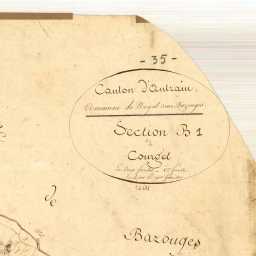 - 35 -
Canton d'Antrain.
Commune de Noyal sous Bazouges
Section B 1
Courgel
de
Bazouges